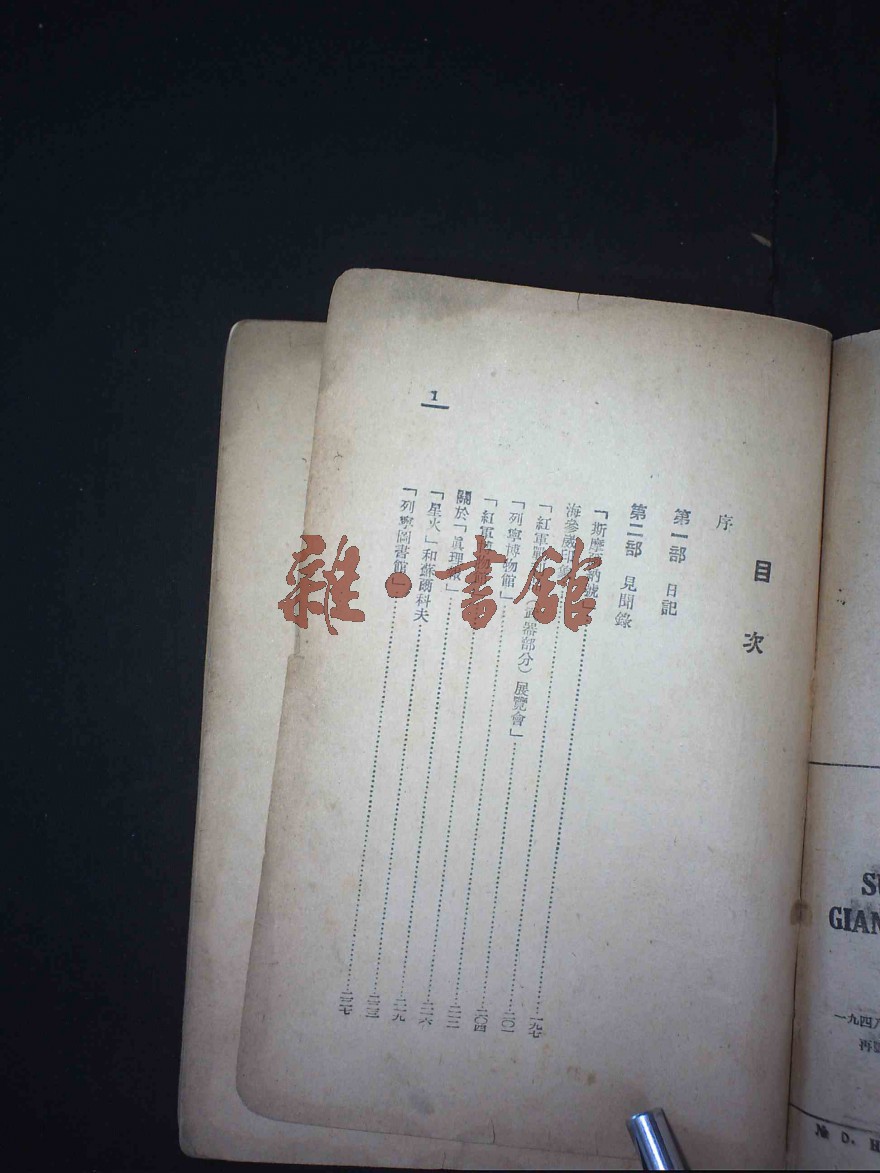 目次
序
第一部 日記
第二部 見聞錄
「斯摩 一九七
海參威印象 二〇一
「紅軍戰利 (武器部分)展覽會」 二〇四
「列寧博物館」
「紅軍博物館 二一六
關於「眞理報」 二一九
「星火」和蘇爾科夫
「列寧圖書館」
1
SU
GIAN
一九四八
再
№ D. H
雜·書館